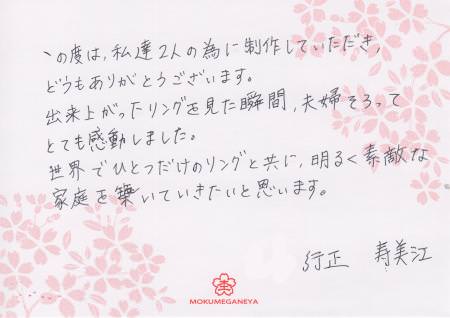 この度は、私達2人の為に制作していただき、
どうもありがとうございます。
出来上がったリングを見た瞬間、夫婦そろって
とても感動しました。
世界でひとつだけのリングと共に、明るく素敵な
家庭を築いていきたいと思います。
行正 寿美江
MOKUMEGANEYA